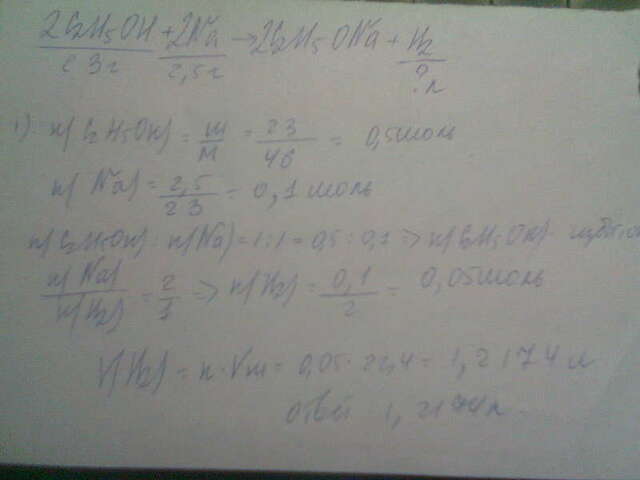 2C₂H₅OH + 2Na → 2C₂H₅ONa + H₂
23г 2,5г ? л
1) n(C₂H₅OH) = m/M = 23/46 = 0,5 моль
n(Na) = 2,5/23 = 0,1 моль
n(C₂H₅OH) : n(Na) = 1:1 = 0,5 : 0,1 ⇒ n(C₂H₅OH)
n(Na)/n(H₂) = 2/1 ⇒ n(H₂) = 0,1/2 = 0,05 моль
V(H₂) = n · Vm = 0,05 · 22,4 = 1,2174 л
ответ 1,2174л